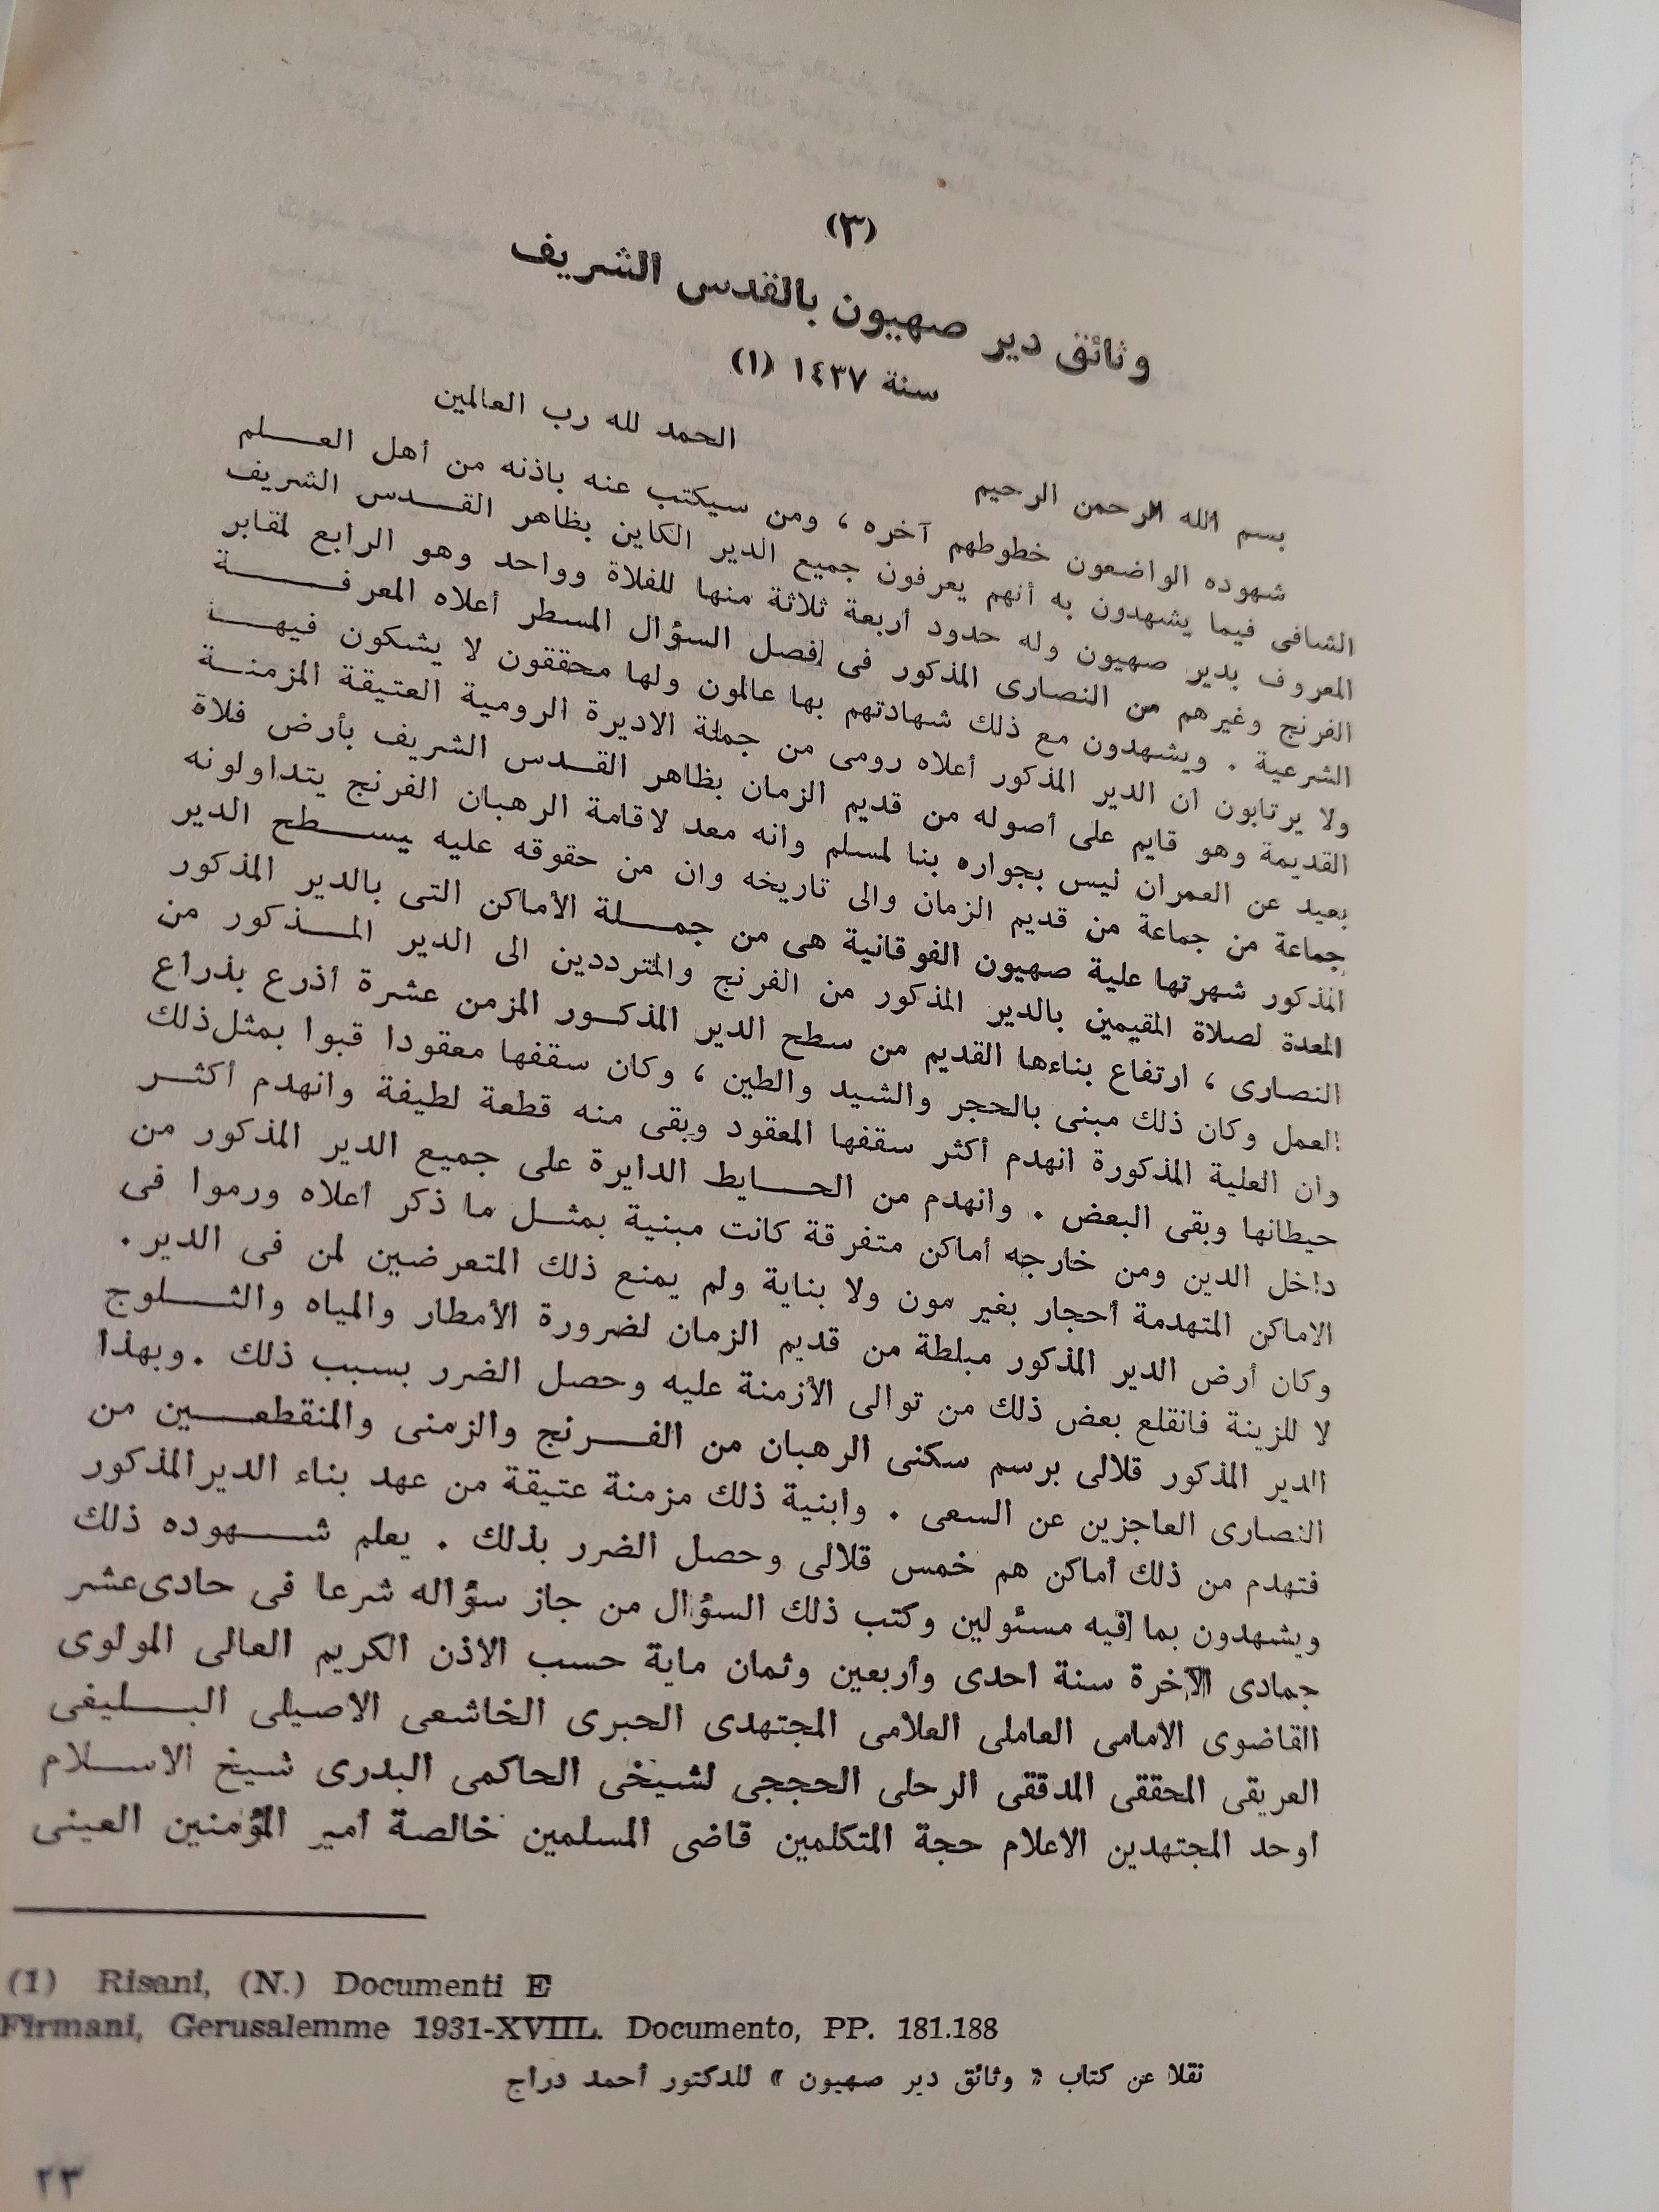 (٣)
وثائق دير صهيون بالقدس الشريف
سنة ١٤٣٧ (١)
الحمد لله رب العالمين
بسم الله الرحمن الرحيم
شهوده الواضعون خطوطهم آخره ، ومن سيكتب عنه باذنه من أهل العلم
الشافى فيما يشهدون به أنهم يعرفون جميع الدير الكاين بظاهر القدس الشريف
المعروف بدير صهيون وله حدود أربعة ثلاثة منها للفلاة وواحد وهو الرابع لمقابر
الفرنج وغيرهم من النصارى المذكور فى فصل السؤال المسطر أعلاه المعرفة
الشرعية . ويشهدون مع ذلك شهادتهم بها عالمون ولها محققون لا يشكون فيها
ولا يرتابون ان الدير المذكور أعلاه رومى من جملة الاديرة الرومية العتيقة المزمنة
القديمة وهو قايم على أصوله من قديم الزمان بظاهر القدس الشريف بأرض فلاة
بعيد عن العمران ليس بجواره بنا لمسلم وانه معد لاقامة الرهبان الفرنج يتداولونه
جماعة من جماعة من قديم الزمان والى تاريخه وان من حقوقه عليه يسطح الدير
المذكور شهرتها علية صهيون الفوقانية هى من جملة الأماكن التى بالدير المذكور
المعدة لصلاة المقيمين بالدير المذكور من الفرنج والمترددين الى الدير المذكور من
النصارى ، ارتفاع بناءها القديم من سطح الدير المذكور المزمن عشرة أذرع بذراع
العمل وكان ذلك مبنى بالحجر والشيد والطين ، وكان سقفها معقودا قبوا بمثل ذلك
وان العلية المذكورة انهدم أكثر سقفها المعقود وبقى منه قطعة لطيفة وانهدم أكثر
حيطانها وبقى البعض . وانهدم من الحايط الدايرة على جميع الدير المذكور من
داخل الدين ومن خارجه أماكن متفرقة كانت مبنية بمثل ما ذكر أعلاه ورموا فى
الاماكن المتهدمة أحجار بغير مون ولا بناية ولم يمنع ذلك المتعرضين لمن فى الدير .
وكان أرض الدير المذكور مبلطة من قديم الزمان لضرورة الأمطار والمياه والثلوج
لا للزينة فانقلع بعض ذلك من توالى الأزمنة عليه وحصل الضرر بسبب ذلك . وبهذا
الدير المذكور قلالى برسم سكنى الرهبان من الفرنج والزمنى والمنقطعين من
النصارى العاجزين عن السعى . وابنية ذلك مزمنة عتيقة من عهد بناء الدير المذكور
فتهدم من ذلك أماكن هم خمس قلالى وحصل الضرر بذلك . يعلم شهوده ذلك
ويشهدون بما فيه مسئولين وكتب ذلك السؤال من جاز سؤاله شرعا فى حادى عشر
جمادى الآخرة سنة احدى وأربعين وثمان ماية حسب الاذن الكريم العالى المولوى
القاضوى الامامى العاملى العلامى المجتهدى الحبرى الخاشعى الاصيلى البليغى
العريقى المحققى المدققى الرحلى الحججى لشيخى الحاكمى البدرى شيخ الاسلام
اوحد المجتهدين الاعلام حجة المتكلمين قاضى المسلمين خالصة أمير المؤمنين العينى
(1) Risani, (N.) Documenti E
Firmani, Gerusalemme 1931-XVIIL. Documento, PP. 181.188
نقلا عن كتاب « وثائق دير صهيون » للدكتور أحمد دراج
٢٣